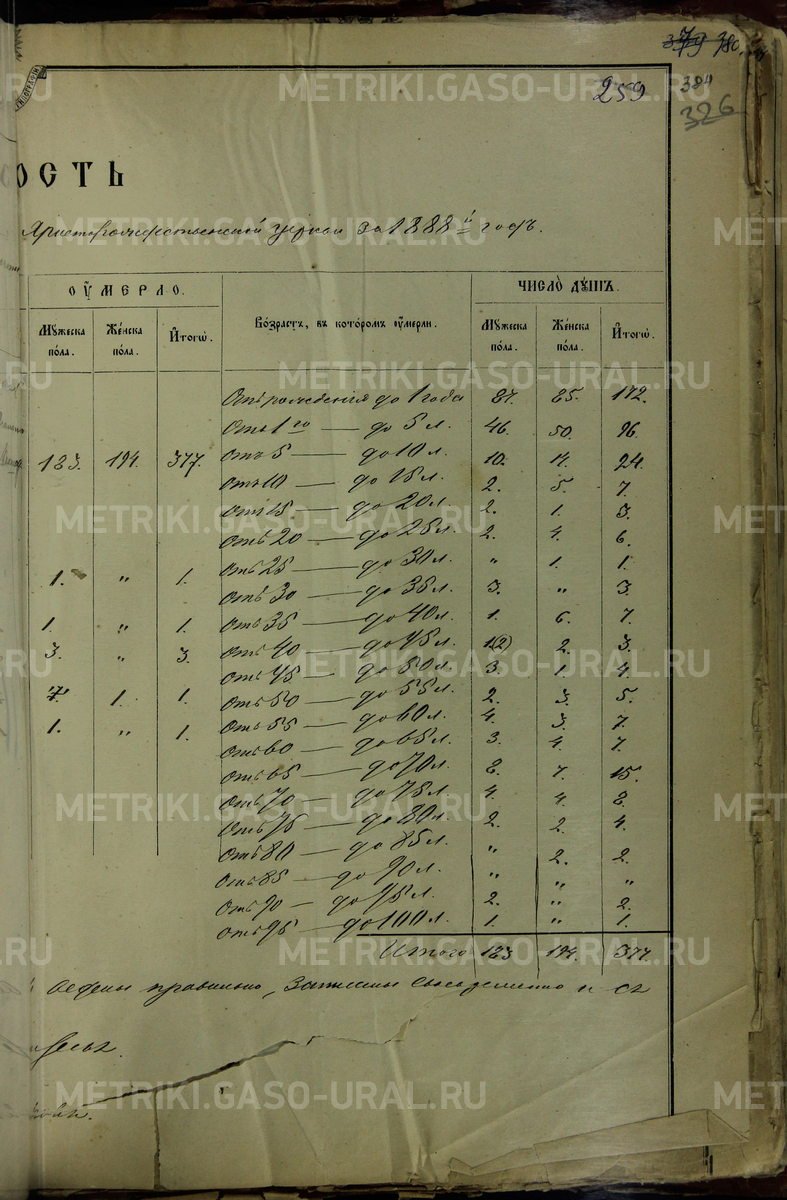 379 380.
259
384
326
ОСТЬ
Христорождественской церкви за 1888й годъ.
ОУМЕРЛО. ЧИСЛО ДУШЪ.
Мужеска пола. Женска пола. Итого. Возрастъ, въ которомъ оумерли. Мужеска пола. Женска пола. Итого.
Отъ рождения до 1 года 87. 85. 172.
Отъ 1го — до 5 л. 46. 50. 96.
183. 194. 377. Отъ 5 — до 10 л. 10. 14. 24.
Отъ 10 — до 15 л. 2. 5. 7.
Отъ 15 — до 20 л. 2. 1. 3.
Отъ 20 — до 25 л. 2. 4. 6.
1. " 1. Отъ 25 — до 30 л. " 1. 1.
Отъ 30 — до 35 л. 3. " 3.
1. " 1. Отъ 35 — до 40 л. 1. 6. 7.
3. " 3. Отъ 40 — до 45 л. 1(2) 2. 3.
Отъ 45 — до 50 л. 3. 1. 4.
1. 1. Отъ 50 — до 55 л. 2. 3. 5.
1. " 1. Отъ 55 — до 60 л. 4. 3. 7.
Отъ 60 — до 65 л. 3. 4. 7.
Отъ 65 — до 70 л. 8. 7. 15.
Отъ 70 — до 75 л. 4. 4. 8.
Отъ 75 — до 80 л. 2. 2. 4.
Отъ 80 — до 85 л. " 2. 2.
Отъ 85 — до 90 л. " " "
Отъ 90 — до 95 л. 2. " 2.
Отъ 95 — до 100 л. 1. " 1.
Итого 183 194. 377
ведены правильно, записаны своевременно и съ
METRIKI.GASO-URAL.RU